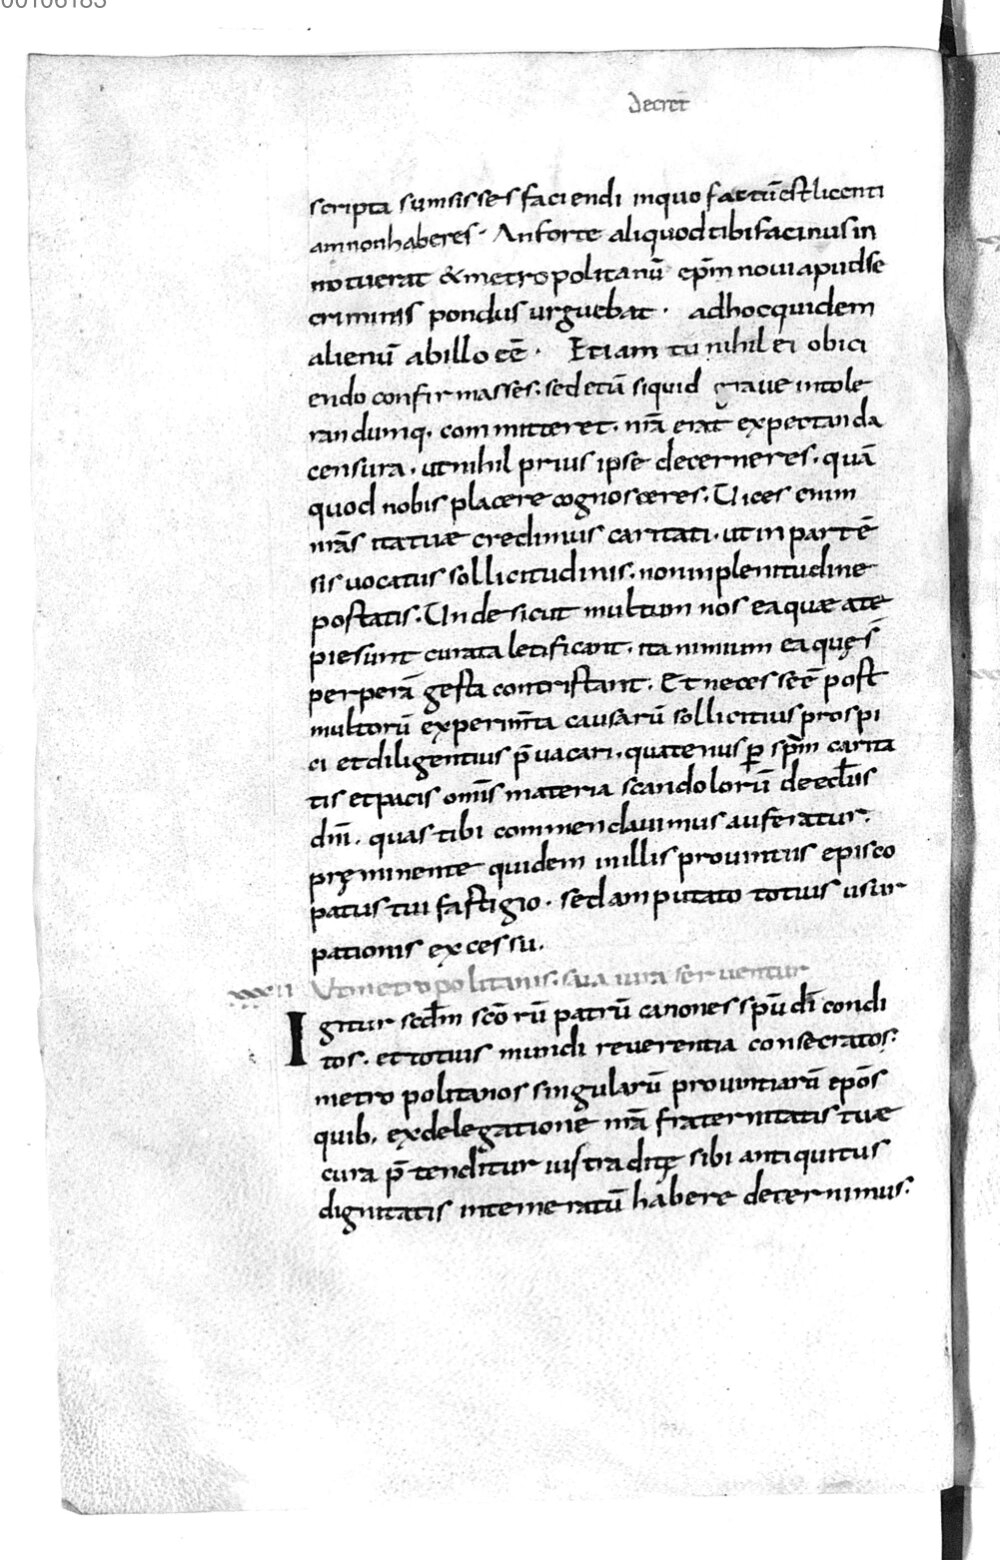 00106183
decret̄
scripta sumsisses faciendi inquo factū est licenti
am non haberes. An forte aliquod tibi facinus in
notuerat & metropolitanū ep̄m noui apud se
criminis pondus urguebat. ad hoc quidem
alienū ab illo eē. Etiam tu nihil ei obici
endo confirmasses. sed etū siquid graue intole
randumq. committeret. nr̄a erat expectanda
censura. ut nihil prius ipse decerneres. quā
quod nobis placere cognosceres. Uices enim
nr̄as ita tuae credimus caritati. ut in partē
sis uocatus sollicitudinis. non in plenitudine
postatis. Unde sicut multum nos ea quae a te
pie sunt curata letificant. ita nimium ea quę s̄
perperā gesta contristant. Et necesse ē post
multorū experim̄ta causarū sollicitius prospi
ci et diligentius p̄uacari. quatenus ꝑ sp̄m carita
tis et pacis om̄is materia scandolorū de eccl̄iis
dn̄i. quas tibi commendauimus auferatur.
pręminente quidem in illis prouintiis episco
patus tui fastigio. sed amputato totius usur
pationis excessu.
xxxII Ut metropolitanis. sua iura seruentur
Igitur scdm̄ scō rū patrū canones spū dī condi
tos. et totius mundi reuerentia consecratos:
metropolitanos singularū prouintiarū ep̄os
quib. ex delegatione nr̄a fraternitatis tuae
cura p̄tenditur ius traditę sibi antiquitus
dignitatis intemeratū habere decernimus.